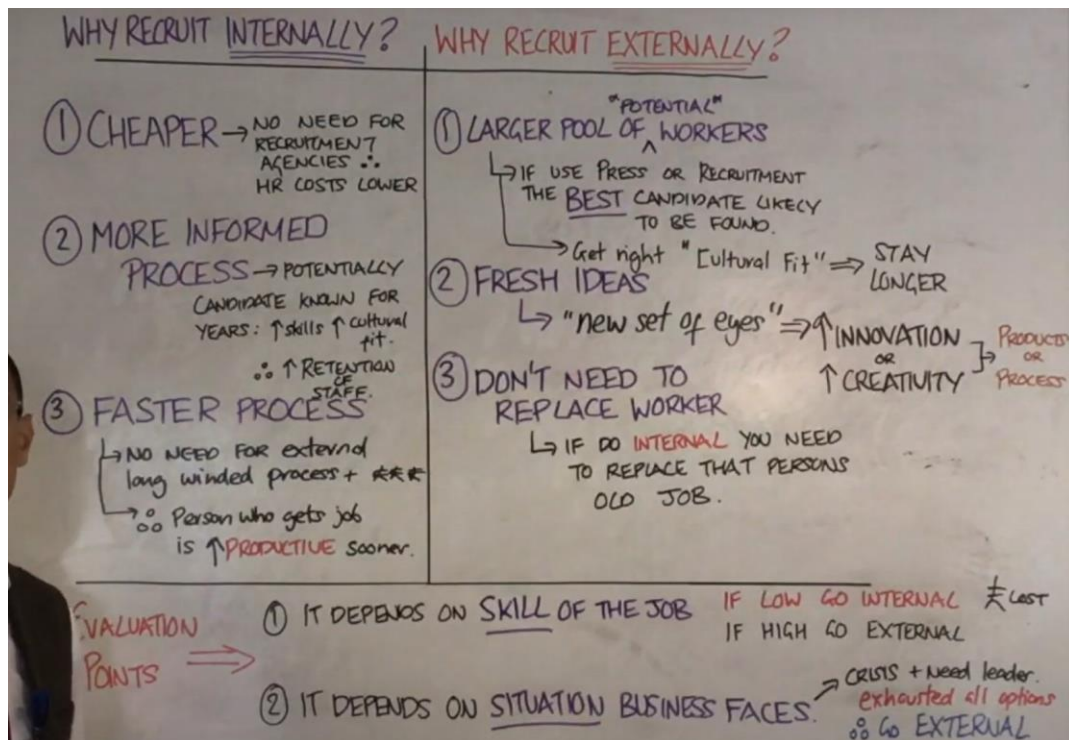 WHY RECRUIT INTERNALLY?
① CHEAPER → NO NEED FOR
RECRUITMENT
AGENCIES ∴
HR COSTS LOWER
② MORE INFORMED
PROCESS → POTENTIALLY
CANDIDATE KNOWN FOR
YEARS: ↑ skills ↑ cultural
fit.
∴ ↑ RETENTION
OF
STAFF.
③ FASTER PROCESS
↳ NO NEED FOR external
long winded process +
→ ∴ Person who gets job
is ↑ PRODUCTIVE sooner.
WHY RECRUIT EXTERNALLY?
"POTENTIAL"
① LARGER POOL OF ^ WORKERS
↳ IF USE PRESS OR RECRUITMENT
THE BEST CANDIDATE LIKELY
TO BE FOUND.
→ Get right "Cultural Fit" ⇒ STAY
LONGER
② FRESH IDEAS
↳ "new set of eyes" ⇒ ↑ INNOVATION
OR
↑ CREATIVITY
PRODUCTS
OR
PROCESS
③ DON'T NEED TO
REPLACE WORKER
↳ IF DO INTERNAL YOU NEED
TO REPLACE THAT PERSONS
OLD JOB.
EVALUATION
POINTS ⇒
① IT DEPENDS ON SKILL OF THE JOB
IF LOW GO INTERNAL COST
IF HIGH GO EXTERNAL
② IT DEPENDS ON SITUATION BUSINESS FACES.
→ CRISIS + Need leader.
exhausted all options
∴ GO EXTERNAL